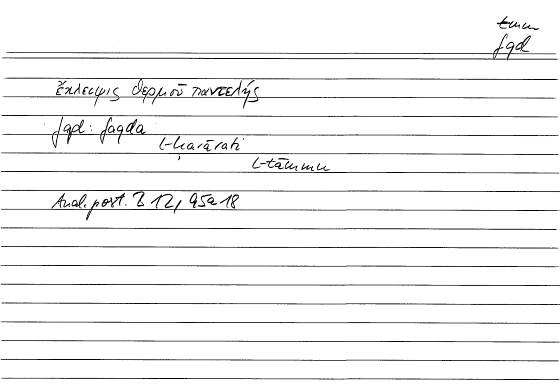 tmm
fqd
ἔκλειψις θερμοῦ παντελής
fqd: faqda
l-ḥarārati
t-tāmmu
Anal. post. B 12, 95a18